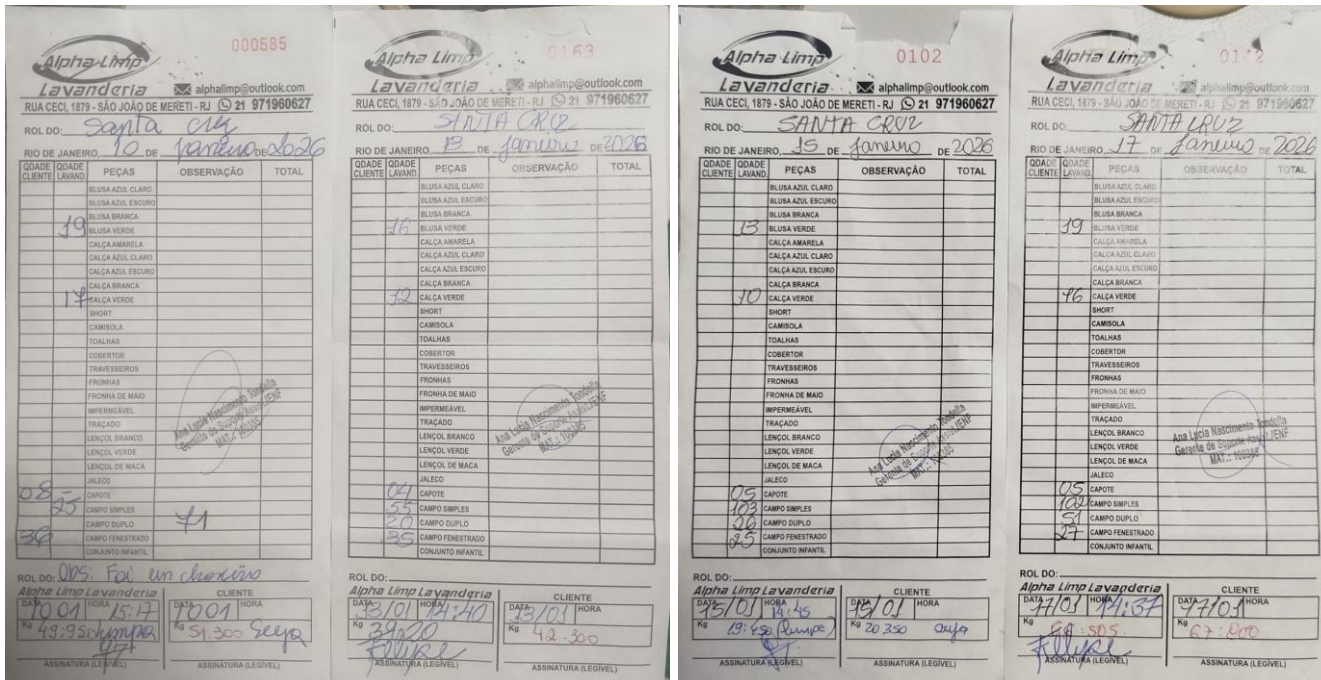 000585
Alpha Limp
Lavanderia alphalimp@outlook.com
RUA CECI, 1879 - SÃO JOÃO DE MERETI - RJ 21 971960627
ROL DO: Santa Cruz
RIO DE JANEIRO, 10 DE Janeiro DE 2026
QDADE CLIENTE QDADE LAVAND. PEÇAS OBSERVAÇÃO TOTAL
BLUSA AZUL CLARO
BLUSA AZUL ESCURO
BLUSA BRANCA
19 BLUSA VERDE
CALÇA AMARELA
CALÇA AZUL CLARO
CALÇA AZUL ESCURO
CALÇA BRANCA
17 CALÇA VERDE
SHORT
CAMISOLA
TOALHAS
COBERTOR
TRAVESSEIROS
FRONHAS
FRONHA DE MAIO
IMPERMEÁVEL
TRAÇADO
LENÇOL BRANCO
LENÇOL VERDE
LENÇOL DE MACA
JALECO
08 - CAPOTE
25 CAMPO SIMPLES
CAMPO DUPLO 71
36 CAMPO FENESTRADO
CONJUNTO INFANTIL
Ana Lucia Nascimento Tondella
Gerente de Suporte Assist./ENF
MAT.: 100385
ROL DO: OBS: Foi un
Alpha Limp Lavanderia CLIENTE
DATA 10.01 HORA 15:17 DATA 10.01 HORA
Kg Kg 51.300
ASSINATURA (LEGÍVEL) ASSINATURA (LEGÍVEL)
0163
Alpha Limp
Lavanderia alphalimp@outlook.com
RUA CECI, 1879 - SÃO JOÃO DE MERETI - RJ 21 971960627
ROL DO: SANTA CRUZ
RIO DE JANEIRO, 13 DE Janeiro DE 2026
QDADE CLIENTE QDADE LAVAND. PEÇAS OBSERVAÇÃO TOTAL
BLUSA AZUL CLARO
BLUSA AZUL ESCURO
BLUSA BRANCA
16 BLUSA VERDE
CALÇA AMARELA
CALÇA AZUL CLARO
CALÇA AZUL ESCURO
CALÇA BRANCA
12 CALÇA VERDE
SHORT
CAMISOLA
TOALHAS
COBERTOR
TRAVESSEIROS
FRONHAS
FRONHA DE MAIO
IMPERMEÁVEL
TRAÇADO
LENÇOL BRANCO
LENÇOL VERDE
LENÇOL DE MACA
JALECO
04 CAPOTE
55 CAMPO SIMPLES
20 CAMPO DUPLO
35 CAMPO FENESTRADO
CONJUNTO INFANTIL
Ana Lucia Nascimento Tondella
Gerente de Suporte Assist./ENF
MAT.: 100385
ROL DO:
Alpha Limp Lavanderia CLIENTE
DATA 13/01 HORA 14:40 DATA 13/01 HORA
Kg 39.20 Kg 42.300
Felipe
ASSINATURA (LEGÍVEL) ASSINATURA (LEGÍVEL)
0102
Alpha Limp
Lavanderia alphalimp@outlook.com
RUA CECI, 1879 - SÃO JOÃO DE MERETI - RJ 21 971960627
ROL DO: SANTA CRUZ
RIO DE JANEIRO, 15 DE Janeiro DE 2026
QDADE CLIENTE QDADE LAVAND. PEÇAS OBSERVAÇÃO TOTAL
BLUSA AZUL CLARO
BLUSA AZUL ESCURO
BLUSA BRANCA
13 BLUSA VERDE
CALÇA AMARELA
CALÇA AZUL CLARO
CALÇA AZUL ESCURO
CALÇA BRANCA
10 CALÇA VERDE
SHORT
CAMISOLA
TOALHAS
COBERTOR
TRAVESSEIROS
FRONHAS
FRONHA DE MAIO
IMPERMEÁVEL
TRAÇADO
LENÇOL BRANCO
LENÇOL VERDE
LENÇOL DE MACA
JALECO
05 CAPOTE
103 CAMPO SIMPLES
26 CAMPO DUPLO
25 CAMPO FENESTRADO
CONJUNTO INFANTIL
Ana Lucia Nascimento Tondella
Gerente de Suporte Assist./ENF
MAT.: 100385
ROL DO:
Alpha Limp Lavanderia CLIENTE
DATA 15/01 HORA 14:45 DATA 15/01 HORA
Kg Kg 20 350
ASSINATURA (LEGÍVEL) ASSINATURA (LEGÍVEL)
Alpha Limp
Lavanderia alphalimp@outlook.com
RUA CECI, 1879 - SÃO JOÃO DE MERETI - RJ 21 971960627
ROL DO: SANTA CRUZ
RIO DE JANEIRO, 17 DE Janeiro DE 2026
QDADE CLIENTE QDADE LAVAND. PEÇAS OBSERVAÇÃO TOTAL
BLUSA AZUL CLARO
BLUSA AZUL ESCURO
BLUSA BRANCA
19 BLUSA VERDE
CALÇA AMARELA
CALÇA AZUL CLARO
CALÇA AZUL ESCURO
CALÇA BRANCA
16 CALÇA VERDE
SHORT
CAMISOLA
TOALHAS
COBERTOR
TRAVESSEIROS
FRONHAS
FRONHA DE MAIO
IMPERMEÁVEL
TRAÇADO
LENÇOL BRANCO
LENÇOL VERDE
LENÇOL DE MACA
JALECO
05 CAPOTE
102 CAMPO SIMPLES
51 CAMPO DUPLO
27 CAMPO FENESTRADO
CONJUNTO INFANTIL
Ana Lucia Nascimento Tondella
Gerente de Suporte Assist./ENF
MAT.: 100385
ROL DO:
Alpha Limp Lavanderia CLIENTE
DATA 17/01 HORA 14:37 DATA 17/01 HORA
Kg Kg 67.200
Felipe
ASSINATURA (LEGÍVEL) ASSINATURA (LEGÍVEL)